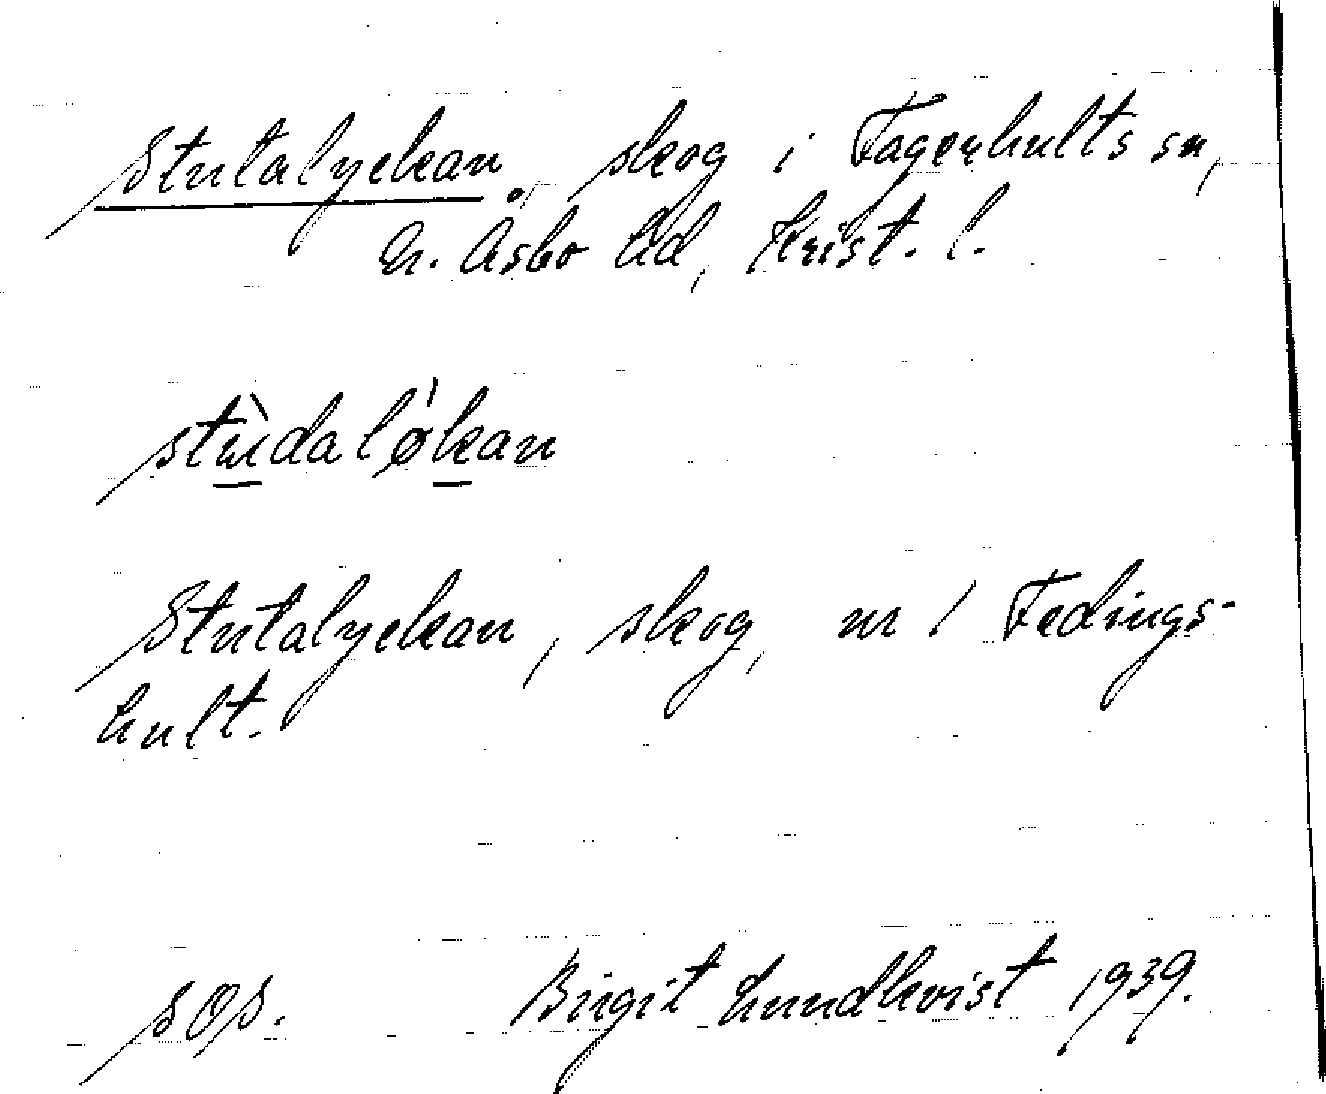 Stutalyckan, skog i Fagerhults sn,
N. Åsbo hd, Krist. l.
stùdalø̍kan
Stutalyckan, skog, nr 1 Fedings-
hult.
SOS. Birgit Lundkvist 1939.